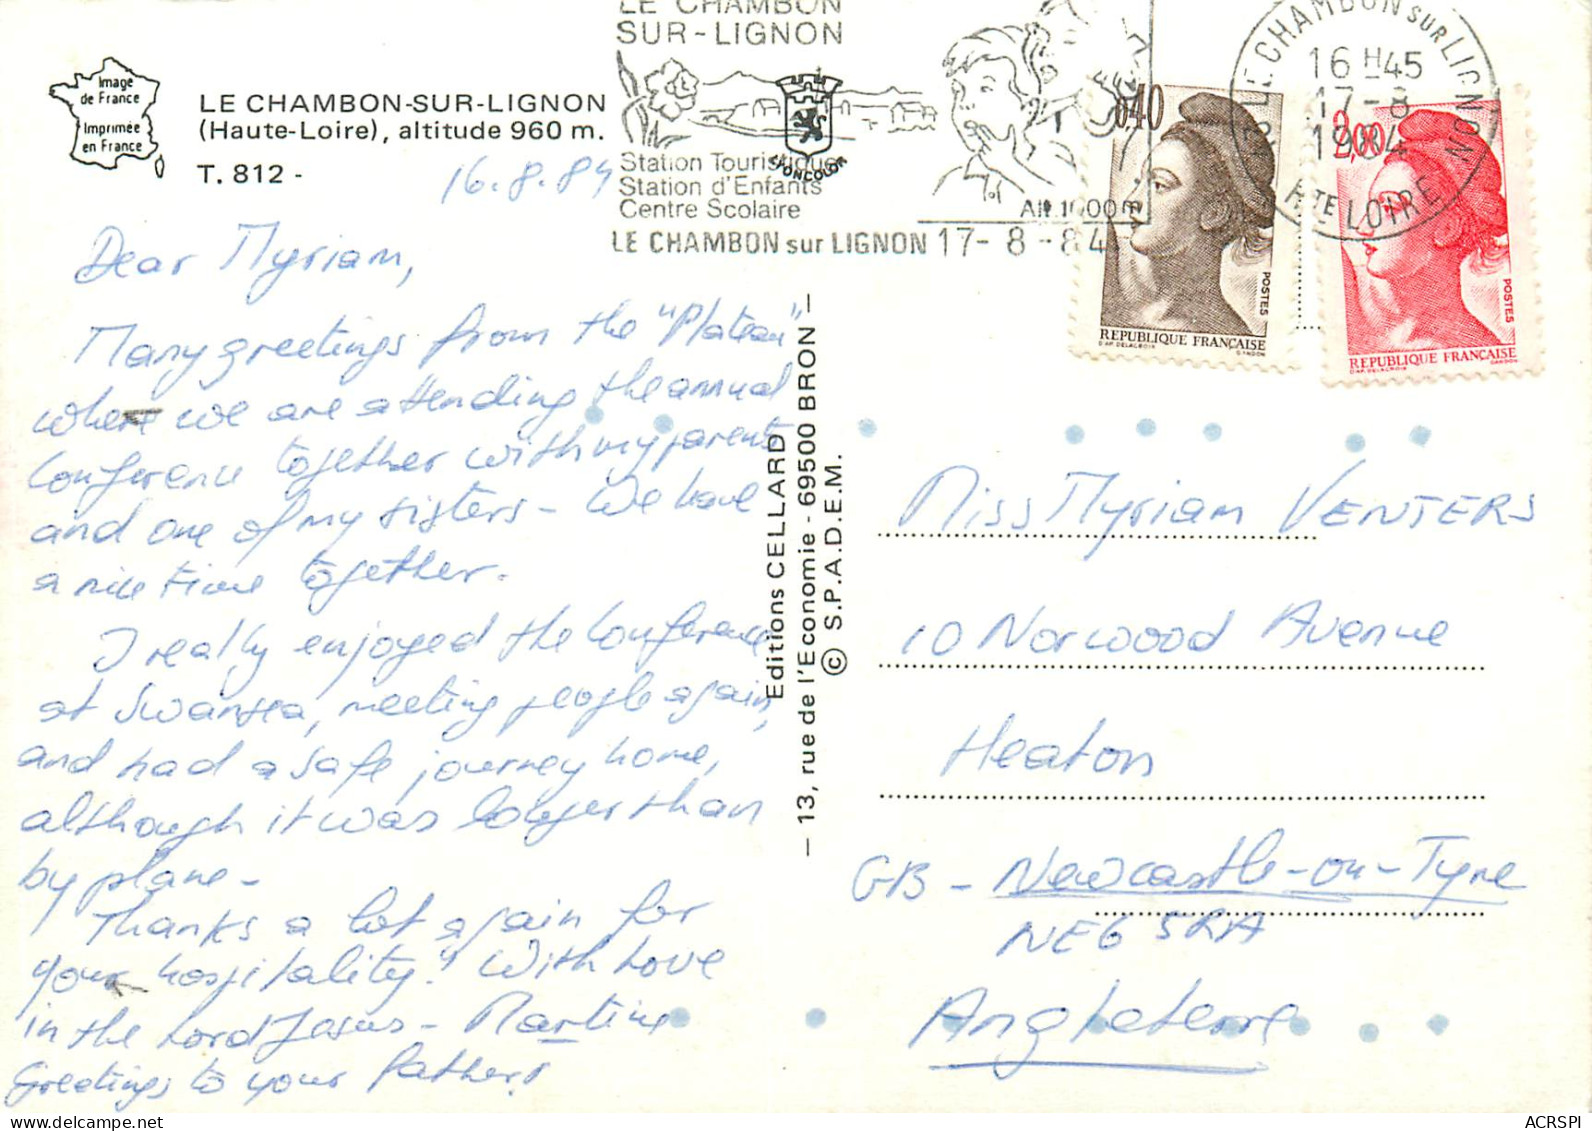 Image
de France
Imprimée
en France
LE CHAMBON-SUR-LIGNON
(Haute-Loire), altitude 960 m.
T. 812 -
LE CHAMBON
SUR-LIGNON
Station Touristique
Station d'Enfants
Centre Scolaire
Alt. 1000m
LE CHAMBON sur LIGNON 17-8-84
LE CHAMBON SUR LIGNON
16 H 45
17-8
1984
HTE LOIRE
0,40
POSTES
REPUBLIQUE FRANÇAISE
D'AP. DELACROIX GANDON
2,00
POSTES
REPUBLIQUE FRANÇAISE
D'AP. DELACROIX GANDON
16.8.84
Dear Myriam,
Many greetings from the "Plateau"
where we are attending the annual
conference together with my parents
and one of my sisters - We have
a nice time together.
I really enjoyed the conference
at Swansea, meeting people again,
and had a safe journey home,
although it was longer than
by plane -
Thanks a lot again for
your hospitality. With love
in the Lord Jesus - Martine
Greetings to your father!
Editions CELLARD
— 13, rue de l'Economie - 69500 BRON —
© S.P.A.D.E.M.
Miss Myriam VENTERS
10 Norwood Avenue
Heaton
GB - Newcastle-on-Tyne
NE6 5RA
Angleterre
ACRSPI